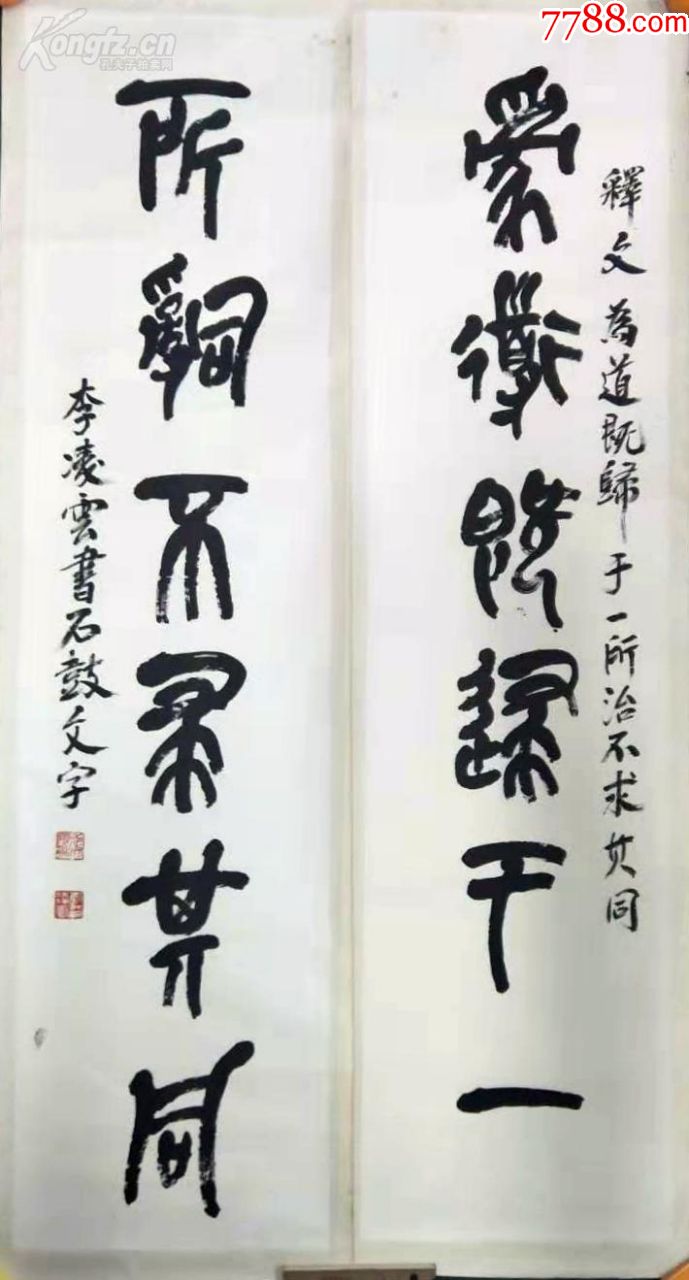 7788.com
Kongfz.cn
孔夫子拍卖网
釋文 為道既歸于一所治不求其同
為道既歸于一
所治不求其同
李凌雲書石鼓文字